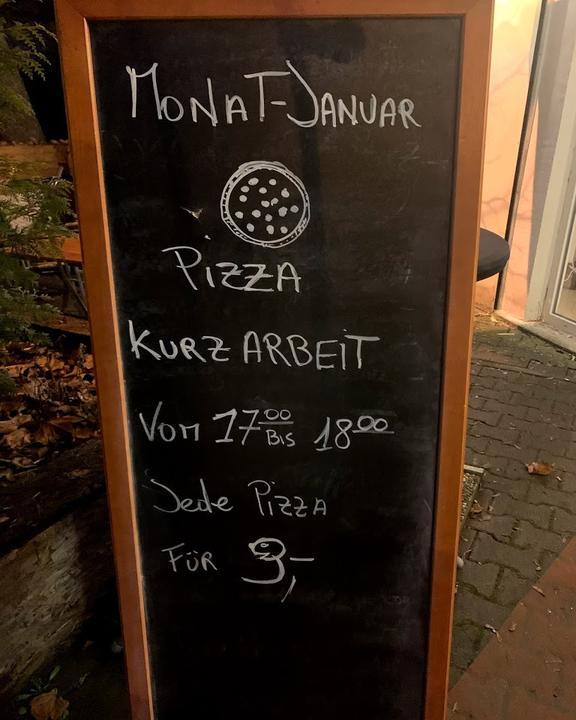 MONAT-JANUAR
PIZZA
KURZARBEIT
VON 17⁰⁰ BIS 18⁰⁰
Jede PIZZA
FÜR 9,-